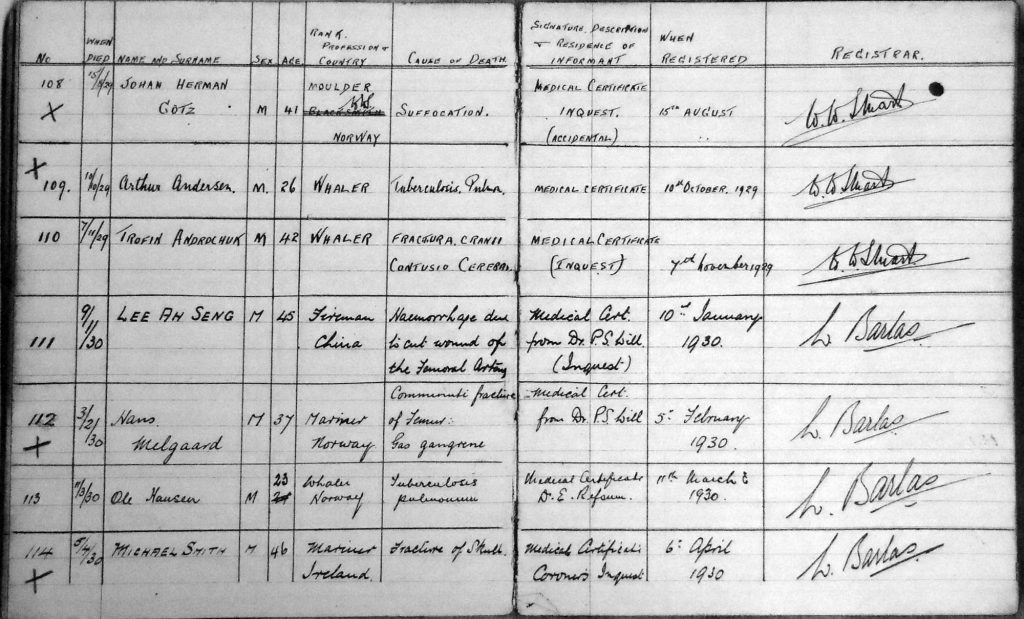 No WHEN DIED NAME AND SURNAME SEX AGE RANK. PROFESSION & COUNTRY CAUSE OF DEATH. SIGNATURE, DESCRIPTION & RESIDENCE OF INFORMANT WHEN REGISTERED REGISTRAR.
108 JOHAN HERMAN MOULDER MEDICAL CERTIFICATE
X GOTZ M 41 BLACKSMITH SUFFOCATION. INQUEST. 15th AUGUST W. W. Stuart
NORWAY (ACCIDENTAL) "
X
109. 10/10/29 Arthur Andersen. M. 26 WHALER Tuberculosis. Pulm. MEDICAL CERTIFICATE 10th OCTOBER. 1929 W. W. Stuart
110 7/11/29 TROFIN ANDROCHUK M 42 WHALER FRACTURA. CRANII MEDICAL CERTIFICATE
CONTUSIO CEREBRI (INQUEST) November 1929 W. W. Stuart
9/ LEE AH SENG M 45 Fireman Haemorrhage due Medical Cert. 10th January L. Barlas
111 /30 China to cut wound of from Dr. 1930.
the Femoral Artery (Inquest)
Comminuti fracture Medical Cert.
112 3/2/30 Hans. M 37 Mariner of Femur: from Dr. 5th February L. Barlas
X Melgaard Norway Gas gangrene 1930.
23 Whaler Tuberculosis Medical Certificate 11th March
113 11/3/30 Ole Hansen M Norway pulmonum D. E. Refsum. 1930. L. Barlas
114 5/4/30 MICHAEL SMITH M 46 Mariner Fracture of Skull. Medical Certificate 6th April L. Barlas
X Ireland. Coroner's Inquest 1930